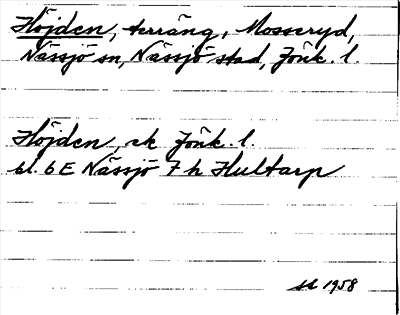 Höjden, terräng, Mosseryd,
Nässjö sn, Nässjö stad, Jönk. l.
Höjden, ek Jönk. l.
bl. 6E Nässjö 7 h Hultarp
sé 1958